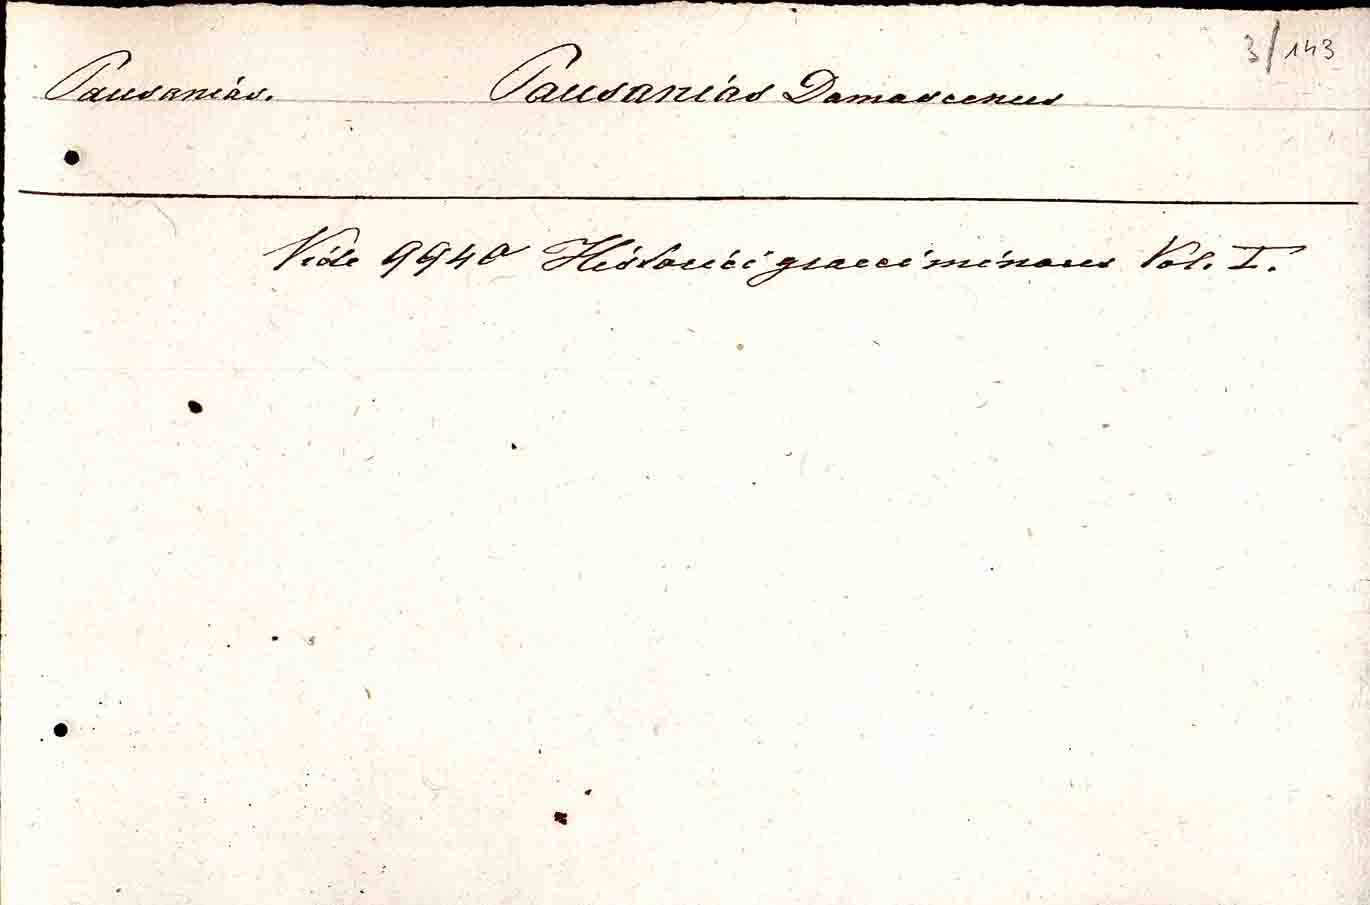 3/143
Pausanias. Pausanias Damascenus
Vide 9940 Historici graeci minores Vol. I.